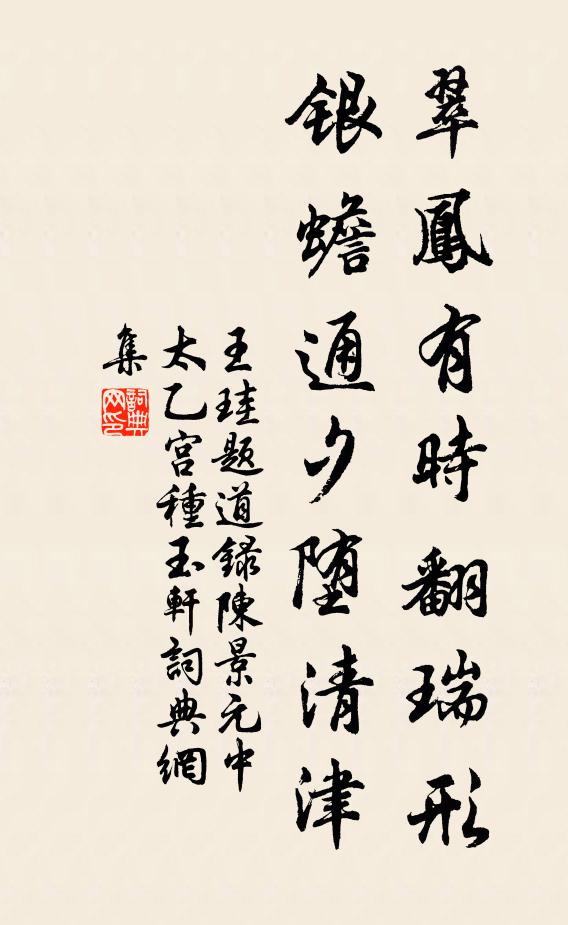 翠鳳有時翻瑞形
銀蟾通夕堕清津
王珪题道録陳景元中
太乙宫種玉軒詞典網
集
詞典
网印